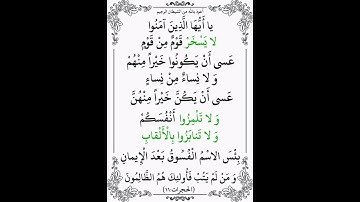 أعوذ بالله من الشيطان الرجيم
يا أَيُّهَا الَّذِينَ آمَنُوا
لا يَسْخَرْ قَوْمٌ مِنْ قَوْمٍ
عَسى أَنْ يَكُونُوا خَيْراً مِنْهُمْ
وَ لا نِساءٌ مِنْ نِساءٍ
عَسى أَنْ يَكُنَّ خَيْراً مِنْهُنَّ
وَ لا تَلْمِزُوا أَنْفُسَكُمْ
وَ لا تَنابَزُوا بِالْأَلْقابِ
بِئْسَ الاسْمُ الْفُسُوقُ بَعْدَ الْإِيمانِ
وَ مَنْ لَمْ يَتُبْ فَأُولئِكَ هُمُ الظَّالِمُونَ
(الحجرات:١١)